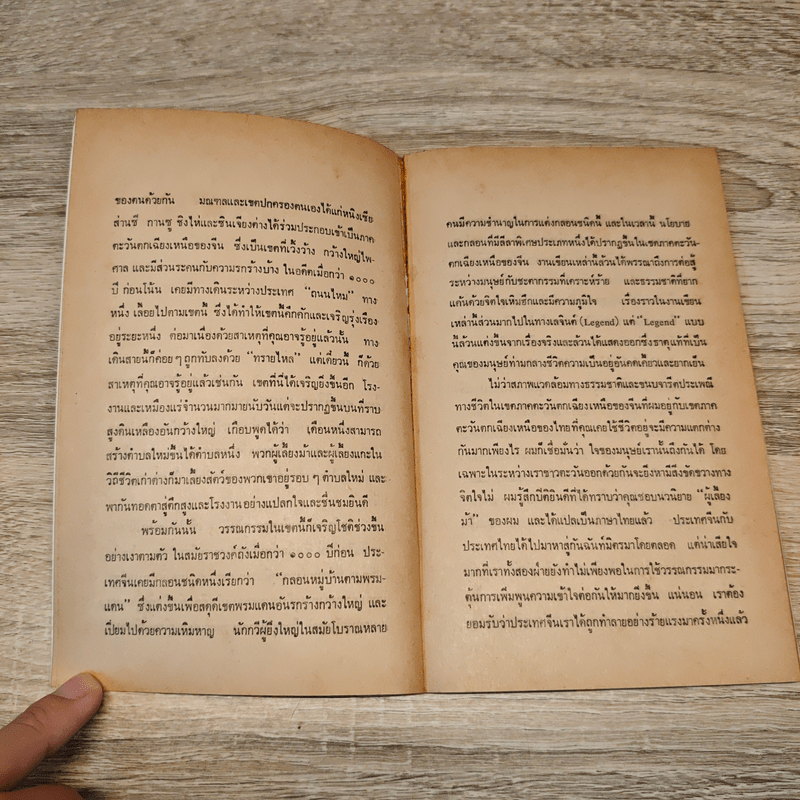 ของตนด้วยกัน มณฑลและเขตปกครองตนเองได้แก่หนิงเซีย
ส่านซี กานซู ชิงไห่และซินเจียงต่างได้ร่วมประกอบเข้าเป็นภาค
ตะวันตกเฉียงเหนือของจีน ซึ่งเป็นเขตที่เวิ้งว้าง กว้างใหญ่ไพ-
ศาล และมีส่วนระคนกับความรกร้างบ้าง ในอดีตเมื่อกว่า ๑๐๐๐
ปี ก่อนโน้น เคยมีทางเดินระหว่างประเทศ "ถนนไหม" ทาง
หนึ่ง เลื้อยไปตามเขตนี้ ซึ่งได้ทำให้เขตนี้คึกคักและเจริญรุ่งเรือง
อยู่ระยะหนึ่ง ต่อมาเนื่องด้วยสาเหตุที่คุณอาจรู้อยู่แล้วนั้น ทาง
เดินสายนี้ก็ค่อย ๆ ถูกทับลงด้วย "ทรายไหล" แต่เดี๋ยวนี้ ก็ด้วย
สาเหตุที่คุณอาจรู้อยู่แล้วเช่นกัน เขตที่นี่ได้เจริญยิ่งขึ้นอีก โรง-
งานและเหมืองแร่จำนวนมากมายนับวันแต่จะปรากฏขึ้นบนที่ราบ
สูงดินเหลืองอันกว้างใหญ่ เกือบพูดได้ว่า เดือนหนึ่งสามารถ
สร้างตำบลใหม่ขึ้นได้ตำบลหนึ่ง พวกผู้เลี้ยงม้าและผู้เลี้ยงแกะใน
วิถีชีวิตเก่าต่างก็มาเลี้ยงสัตว์ของพวกเขาอยู่รอบ ๆ ตำบลใหม่ และ
พากันทอดตาสู่ตึกสูงและโรงงานอย่างแปลกใจและชื่นชมยินดี
พร้อมกันนั้น วรรณกรรมในเขตนี้ก็เจริญโชติช่วงขึ้น
อย่างเงาตามตัว ในสมัยราชวงค์ถังเมื่อกว่า ๑๐๐๐ ปีก่อน ประ-
เทศจีนเคยมีกลอนชนิดหนึ่งเรียกว่า "กลอนหมู่บ้านตามพรม-
แดน" ซึ่งแต่งขึ้นเพื่อสดุดีเขตพรมแดนอันรกร้างกว้างใหญ่ และ
เปี่ยมไปด้วยความเหิมหาญ นักกวีผู้ยิ่งใหญ่ในสมัยโบราณหลาย
คนมีความชำนาญในการแต่งกลอนชนิดนี้ และในเวลานี้ นโยบาย
และกลอนที่มีลีลาพิเศษประเภทหนึ่งได้ปรากฏขึ้นในเขตภาคตะวัน-
ตกเฉียงเหนือของจีน งานเขียนเหล่านี้ล้วนได้พรรณาถึงการต่อสู้
ระหว่างมนุษย์กับชะตากรรมที่เคราะห์ร้าย และธรรมชาติที่ยาก
แค้นด้วยจิตใจเหิมฮึกและมีความภูมิใจ เรื่องราวในงานเขียน
เหล่านี้ส่วนมากไปในทางเลจินด์ (Legend) แต่ "Legend" แบบ
นี้ล้วนแต่งขึ้นจากเรื่องจริงและล้วนได้แสดงออกซึ่งธาตุแท้ที่เป็น
คุณของมนุษย์ท่ามกลางชีวิตความเป็นอยู่อันคดเคี้ยวและยากเย็น
ไม่ว่าสภาพแวดล้อมทางธรรมชาติและขนบจารีตประเพณี
ทางชีวิตในเขตภาคตะวันตกเฉียงเหนือของจีนที่ผมอยู่กับเขตภาค
ตะวันตกเฉียงเหนือของไทยที่คุณเคยใช้ชีวิตอยู่จะมีความแตกต่าง
กันมากเพียงไร ผมก็เชื่อมั่นว่า ใจของมนุษย์เรานั้นถึงกันได้ โดย
เฉพาะในระหว่างเราชาวตะวันออกด้วยกันจะยิ่งหามีสิ่งขัดขวางทาง
จิตใจไม่ ผมรู้สึกปิติยินดีที่ได้ทราบว่าคุณชอบนวนิยาย "ผู้เลี้ยง
ม้า" ของผม และได้แปลเป็นภาษาไทยแล้ว ประเทศจีนกับ
ประเทศไทยได้ไปมาหาสู่กันฉันท์มิตรมาโดยตลอด แต่น่าเสียใจ
มากที่เราทั้งสองฝ่ายยังทำไม่เพียงพอในการใช้วรรณกรรมมากระ-
ตุ้นการเพิ่มพูนความเข้าใจต่อกันให้มากยิ่งขึ้น แน่นอน เราต้อง
ยอมรับว่าประเทศจีนเราได้ถูกทำลายอย่างร้ายแรงมาครั้งหนึ่งแล้ว